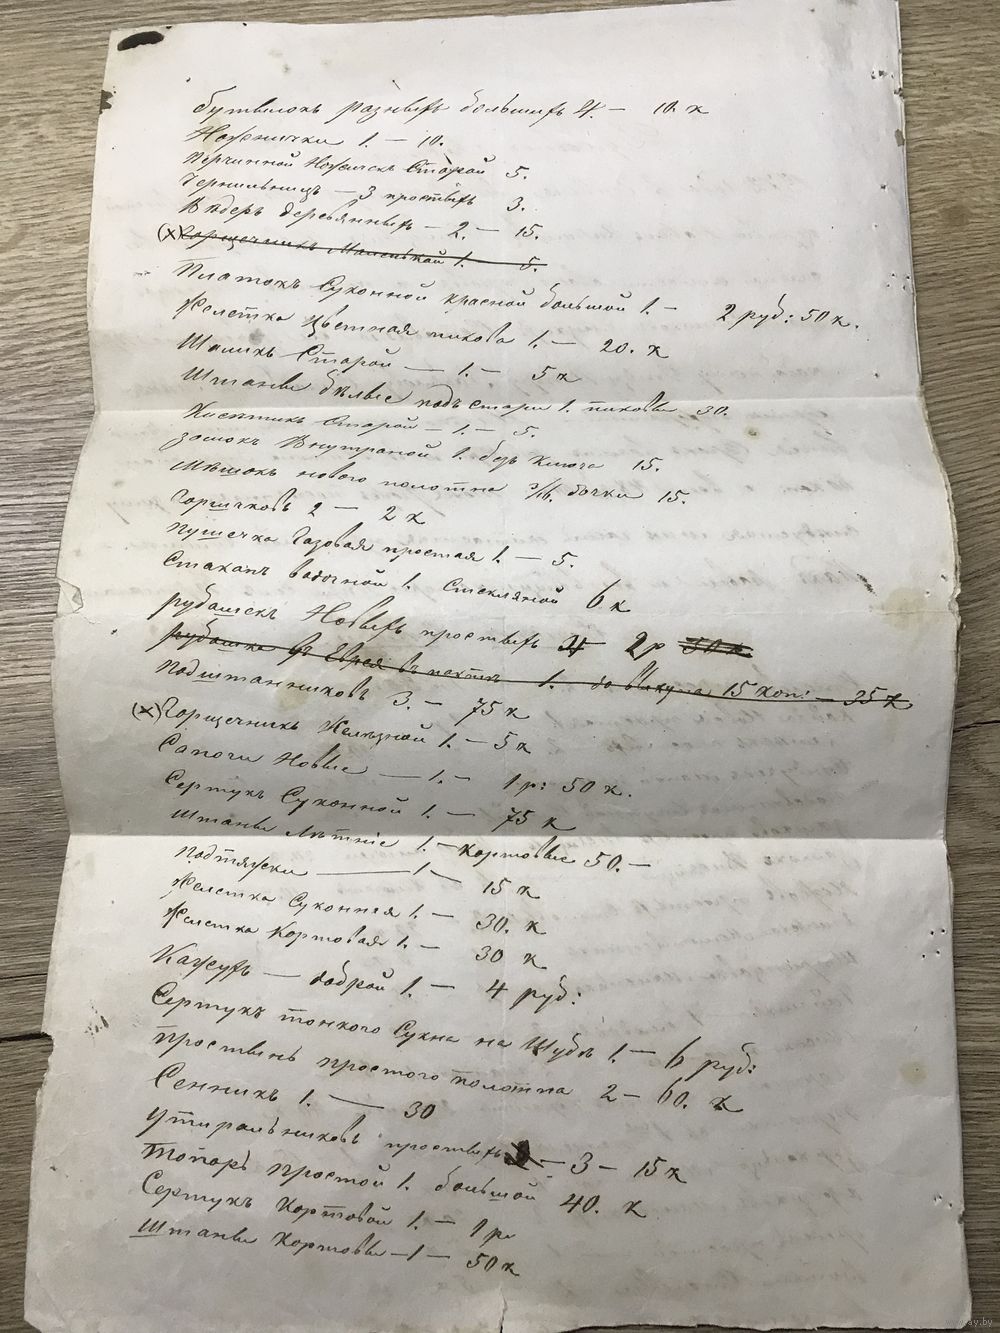 бутылокъ разныхъ большихъ 4. — 10. к
Ножнички 1. — 10.
Перчинной Ножикъ Старой 5.
Чернильницъ — 3 простыхъ 3.
Вѣдеръ деревянныхъ — 2. — 15.
(х) Горщечникъ Маленькой 1. — 5.
Платокъ Суконной красной большой 1. — 2 руб: 50 к.
Жилетка Цвѣтная пикова 1. — 20. к
Шаликъ Старой — 1. — 5 к
Штаны бѣлые подъстари 1. пиковые 30.
Кисетикъ Старой — 1. — 5.
замокъ Внутраной 1. безъ Ключа 15.
Мѣшокъ нового полотна бочки 15.
Горшчковъ 2 — 2 к
пушечка Газовая простая 1. — 5.
Стаканъ водочной 1. Стекляной 6 к
рубашекъ Новыхъ простыхъ 2 р 50 к
рубашка 1. 15 коп: — 35 к
Подштанниковъ 3. — 75 к
(х) Горщечникъ Желѣзной 1. — 5 к
Сапоги Новые — 1. — 1 р: 50 к.
Сертукъ Суконной 1. — 75 к
Штаны Лѣтніе 1. — Кортовые 50. —
Подтяжки — 1 — 15 к
Жилетка Суконная 1. — 30. к
Жилетка Кортовая 1. — 30 к
Кажухъ — доброй 1. — 4 руб:
Сертукъ тонкого Сукна на Шубѣ 1. — 6 руб:
Простынь простого полотна 2 — 60. к
Сенникъ 1. — 30
Утиральниковъ простыхъ — 3 — 15 к
Топоръ простой 1. большой 40. к
Сертукъ Кортовой 1. — 1 р
Штаны Кортовы — 1 — 50 к
ay.by